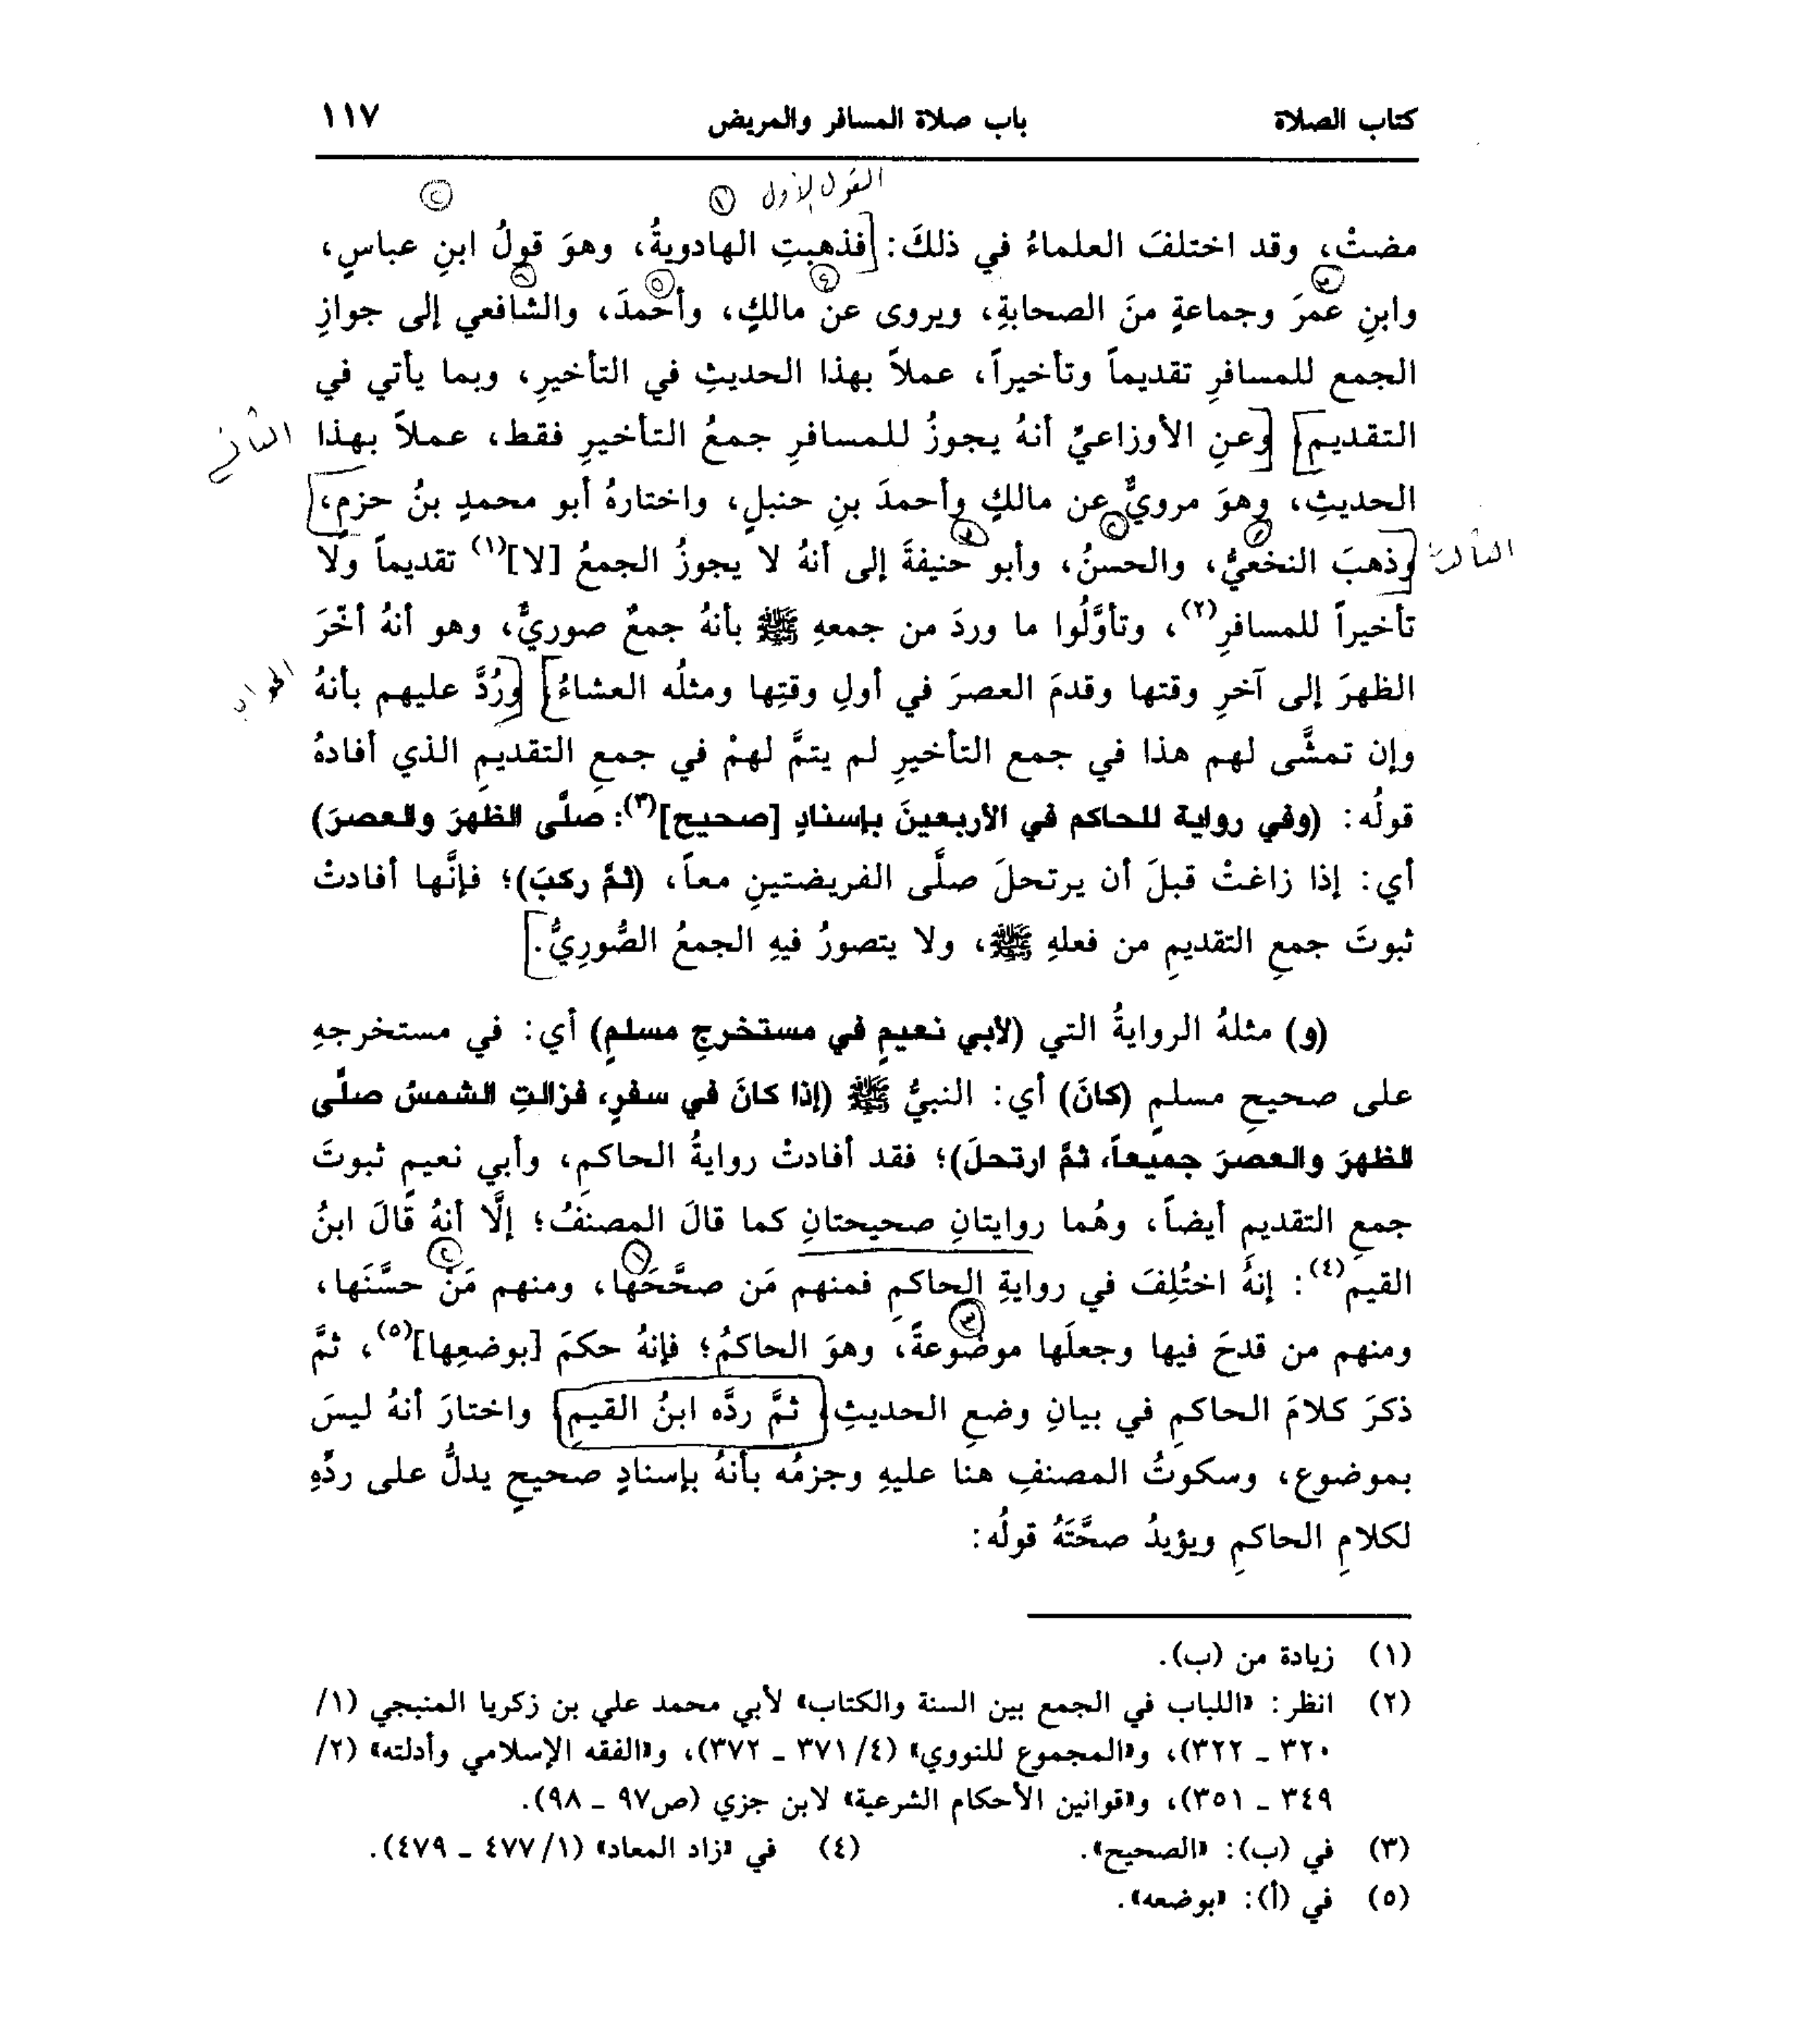 كتاب الصلاة باب صلاة المسافر والمريض ١١٧
القول الأول ١ ٢
مضتْ، وقد اختلفَ العلماءُ في ذلكَ: [فذهبتِ الهادويةُ، وهوَ قولُ ابنِ عباسٍ،
٣ ٤ ٥ ٦
وابنِ عمرَ وجماعةٍ منَ الصحابةِ، ويروى عن مالكٍ، وأحمدَ، والشافعي إلى جوازِ
الجمع للمسافرِ تقديماً وتأخيراً، عملاً بهذا الحديثِ في التأخيرِ، وبما يأتي في
التقديمِ] [وعنِ الأوزاعيِّ أنهُ يجوزُ للمسافرِ جمعُ التأخيرِ فقط، عملاً بهذا الثاني
الحديثِ، وهوَ مرويٌّ عن مالكٍ وأحمدَ بنِ حنبلٍ، واختارهُ أبو محمدٍ بنُ حزمٍ،]
١ ٢ ٣
الثالث: [وذهبَ النخعيُّ، والحسنُ، وأبو حنيفةَ إلى أنهُ لا يجوزُ الجمعُ [لا](١) تقديماً ولا
تأخيراً للمسافرِ(٢)، وتأوَّلُوا ما وردَ من جمعهِ ﷺ بأنهُ جمعٌ صوريٌّ، وهو أنهُ أخّرَ
الظهرَ إلى آخرِ وقتها وقدمَ العصرَ في أولِ وقتِها ومثلُه العشاءُ] [ورُدَّ عليهم بأنهُ الجواب
وإن تمشَّى لهم هذا في جمع التأخيرِ لم يتمَّ لهمْ في جمعِ التقديمِ الذي أفادهُ
قولُه: (وفي رواية للحاكم في الأربعينَ بإسنادٍ [صحيح](٣): صلَّى الظهرَ والعصرَ)
أي: إذا زاغتْ قبلَ أن يرتحلَ صلَّى الفريضتينِ معاً، (ثمَّ ركبَ)؛ فإنَّها أفادتْ
ثبوتَ جمعِ التقديمِ من فعلهِ ﷺ، ولا يتصورُ فيهِ الجمعُ الصُّورِيُّ.]
(و) مثلهُ الروايةُ التي (لأبي نعيمٍ في مستخرجِ مسلمٍ) أي: في مستخرجهِ
على صحيحِ مسلمٍ (كانَ) أي: النبيُّ ﷺ (إذا كانَ في سفرٍ، فزالتِ الشمسُ صلَّى
الظهرَ والعصرَ جميعاً، ثمَّ ارتحلَ)؛ فقد أفادتْ روايةُ الحاكمِ، وأبي نعيمٍ ثبوتَ
جمعِ التقديمِ أيضاً، وهُما روايتانِ صحيحتانِ كما قالَ المصنفُ؛ إلَّا أنهُ قالَ ابنُ
١ ٢
القيمِ(٤): إنهُ اختُلِفَ في روايةِ الحاكمِ فمنهم مَن صحَّحَها، ومنهم مَنْ حسَّنَها،
٣
ومنهم من قدحَ فيها وجعلَها موضوعةً، وهوَ الحاكمُ؛ فإنهُ حكمَ [بوضعِها](٥)، ثمَّ
ذكرَ كلامَ الحاكمِ في بيانِ وضعِ الحديثِ، ثمَّ ردَّه ابنُ القيمِ، واختارَ أنهُ ليسَ
بموضوعٍ، وسكوتُ المصنفِ هنا عليهِ وجزمُه بأنهُ بإسنادٍ صحيحٍ يدلُّ على ردِّهِ
لكلامِ الحاكمِ ويؤيدُ صحَّتَهُ قولُه:
(١) زيادة من (ب).
(٢) انظر: «اللباب في الجمع بين السنة والكتاب» لأبي محمد علي بن زكريا المنبجي (١/
٣٢٠ ـ ٣٢٢)، و«المجموع للنووي» (٤/ ٣٧١ ـ ٣٧٢)، و«الفقه الإسلامي وأدلته» (٢/
٣٤٩ ـ ٣٥١)، و«قوانين الأحكام الشرعية» لابن جزي (ص٩٧ ـ ٩٨).
(٣) في (ب): «الصحيح». (٤) في «زاد المعاد» (١/ ٤٧٧ ـ ٤٧٩).
(٥) في (أ): «بوضعه».